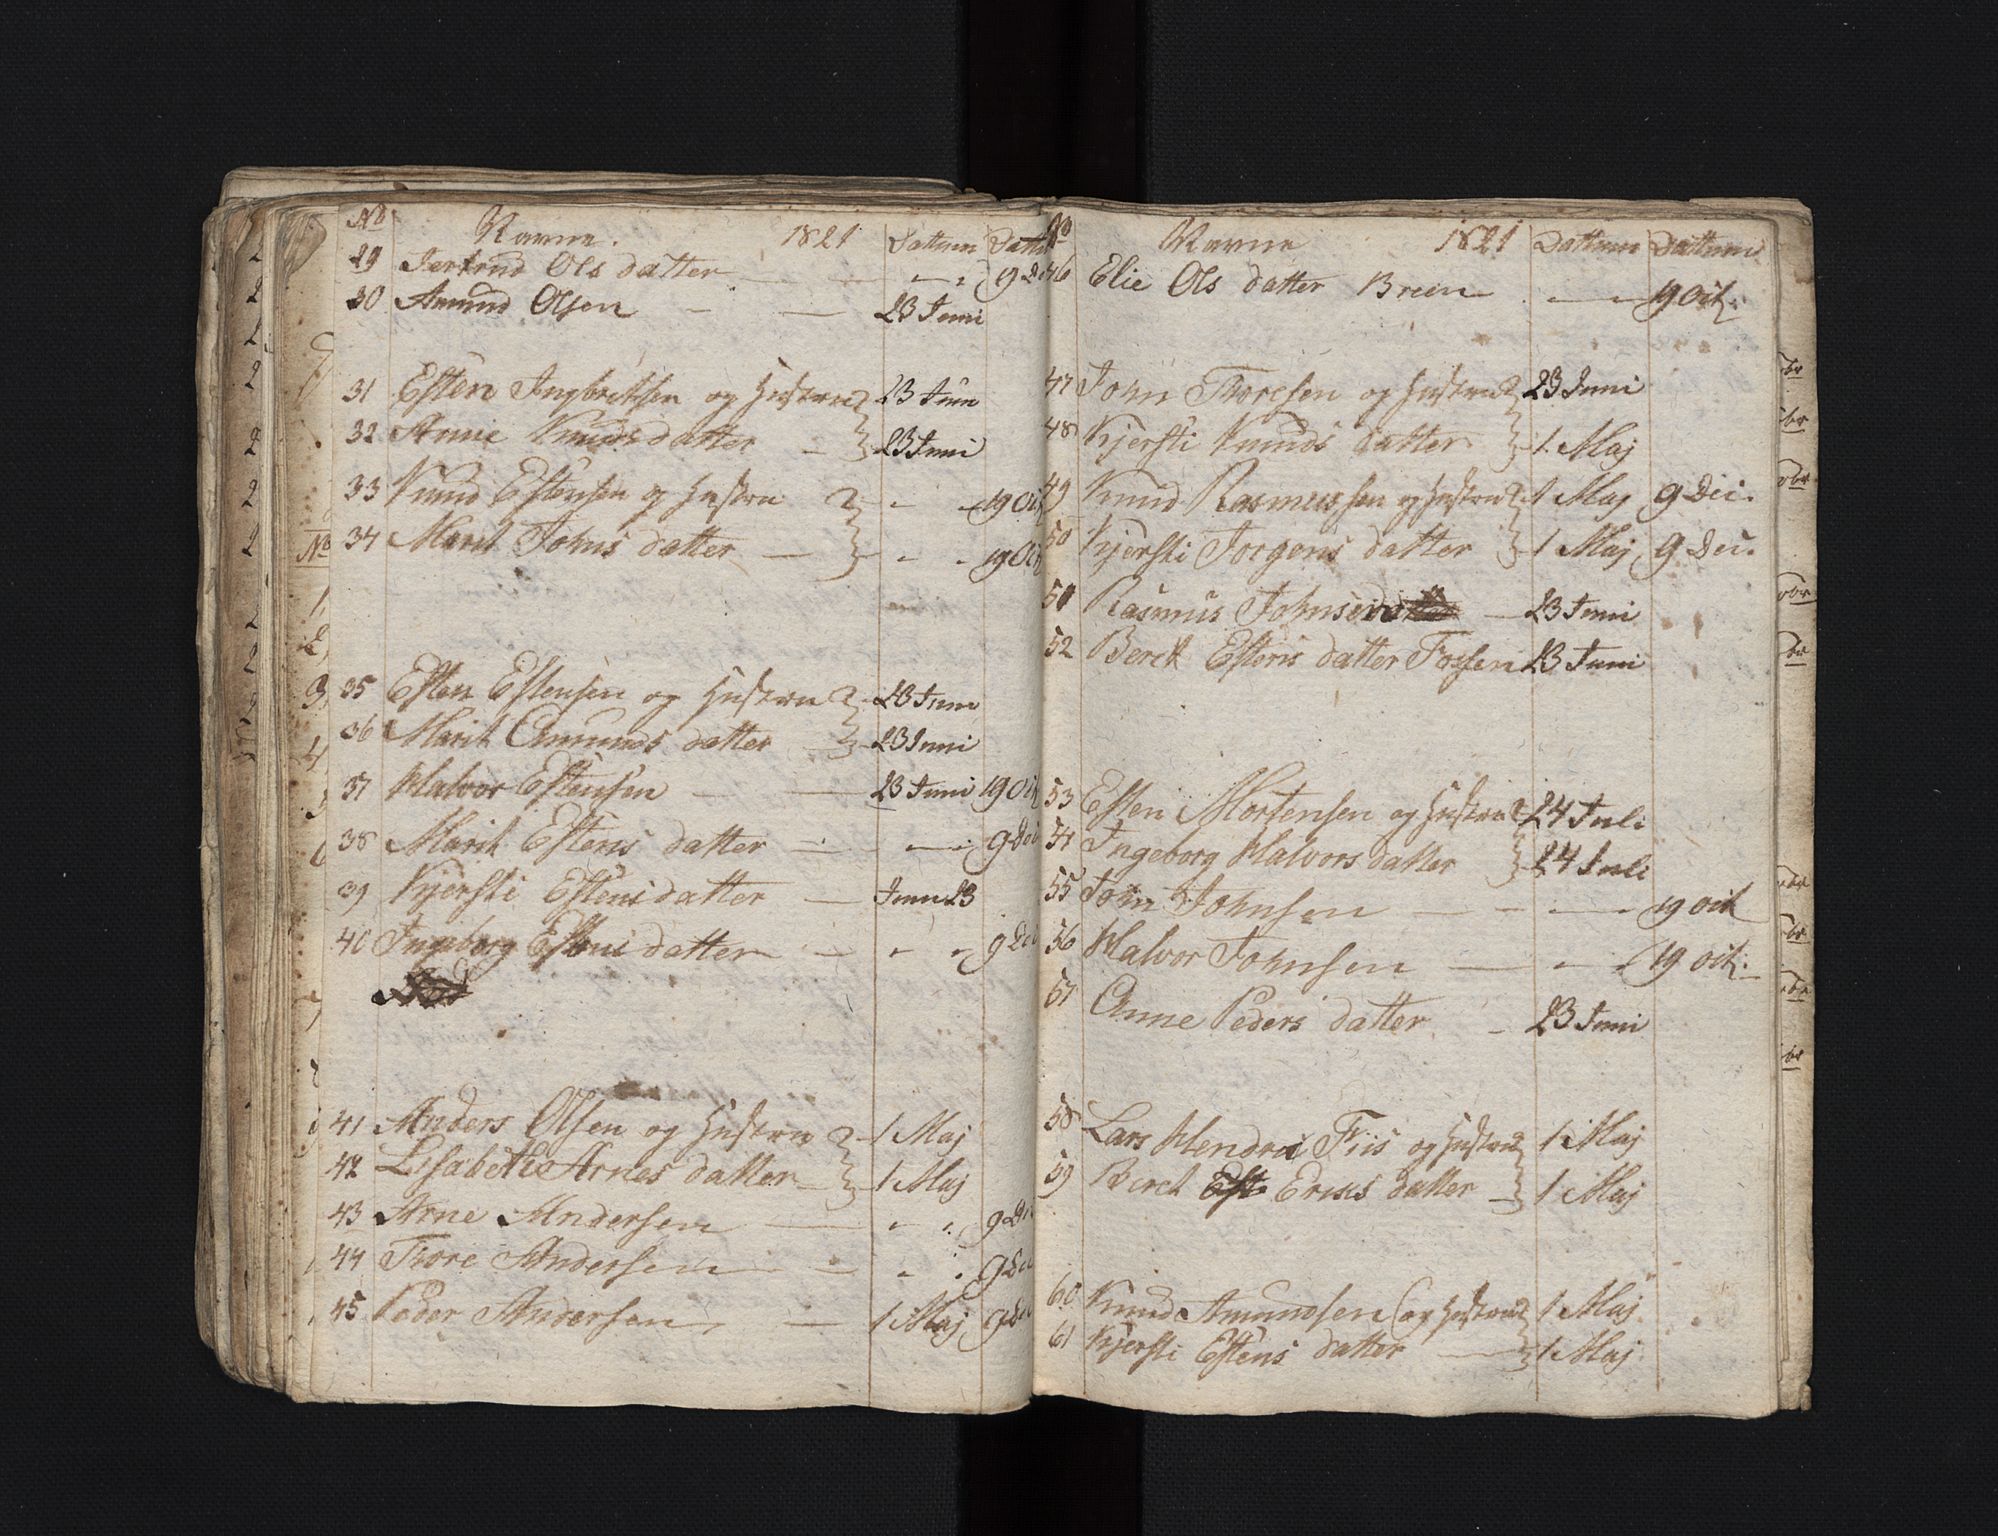 No Navne. 1821 Dattum Dattu
29 Jertrud Ols datter — 9 De
30 Amund Olsen — 23 Juni
31 Esten Ingbrittsen og Hustru 23 Jun
32 Anne Knudsdatter 23 Juni
33 Knud Estensen og Hustru 19 Oct
34 Marit Johns datter — 19 Oct
35 Esten Estensen og Hustru 23 Juni
36 Marit Amunds datter 23 Juni
37 Halvor Estensen — 23 Juni 19 Oct
38 Marit Estens datter — 9 Dec
39 Kjersti Estens datter — Juni 23
40 Ingeborg Estens datter — 9 Dec
41 Anders Olsen og Hustru 1 Maj
42 Lisabeth Arnes datter 1 Maj
43 Arne Andersen — 9 De
44 Thore Andersen — 9 Dec
45 Peder Andersen — 1 Maj 9 Dec
No Navne 1821 Dattum Dattum
46 Elie Ols datter Breen — 19 Oct.
47 John Thoresen og Hustru 23 Juni
48 Kjersti Knuds datter 1 Maj
49 Knud Rasmussen og Hustru 1 Maj 9 Dec.
50 Kjersti Jorgens datter 1 Maj 9 Dec.
51 Rasmus Johnsen — 23 Juni
52 Beret Estens datter Fossen 23 Juni
53 Esten Mortensen og Hustru 24 Juli
54 Ingeborg Halvors datter 24 Juli
55 John Johnsen — 19 Oct
56 Halvor Johnsen — 19 Oct.
57 Anne Peders datter — 23 Juni
58 Lars Hendri Fiis og Hustru 1 Maj
59 Beret Erics datter — 1 Maj
60 Knud Amundsen (og Hustru 1 Maj
61 Kjersti Estens datter — 1 Maj